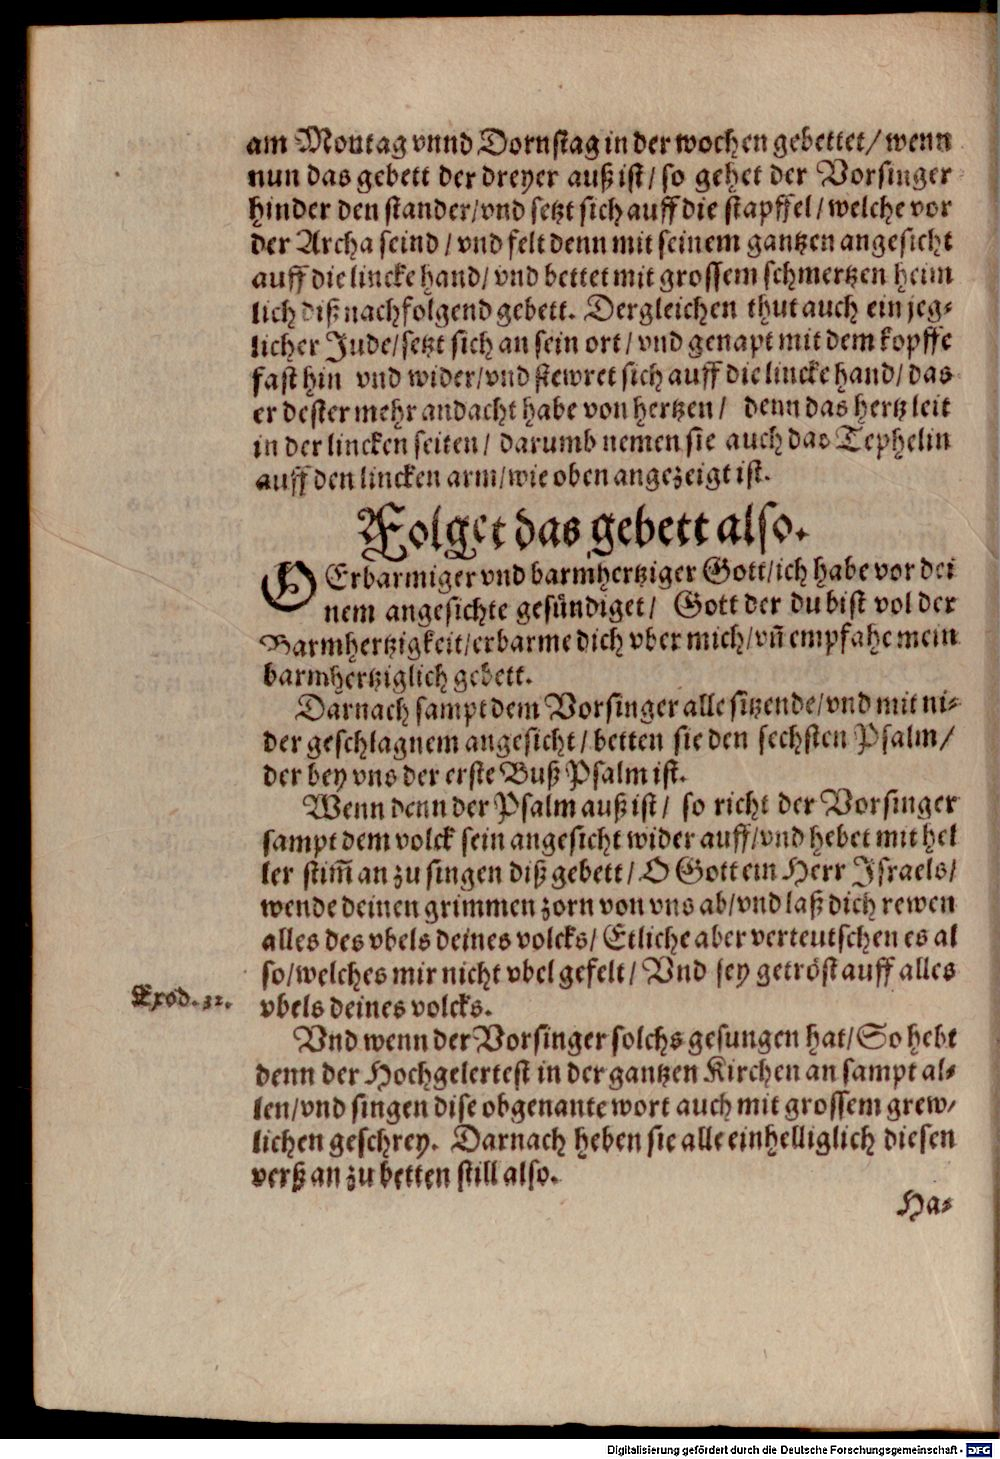 am Montag vnnd Dornstag in der wochen gebettet/ wenn
nun das gebett der dreyer auß ist/ so gehet der Vorsinger
hinder den stander/ vnd setzt sich auff die stapffel/ welche vor
der Archa seind/ vnd felt denn mit seinem gantzen angesicht
auff die lincke hand/ vnd bettet mit grossem schmertzen heim
lich diß nachfolgend gebett. Dergleichen thut auch ein jeg⸗
licher Jude/ setzt sich an sein ort/ vnd genapt mit dem kopffe
fast hin vnd wider/ vnd stewret sich auff die lincke hand/ das
er dester mehr andacht habe von hertzen/ denn das hertz leit
in der lincken seiten/ darumb nemen sie auch das Tephelin
auff den lincken arm/ wie oben angezeigt ist.
Folget das gebett also.
O Erbarmiger vnd barmhertziger Gott/ ich habe vor dei
nem angesichte gesündiget/ Gott der du bist vol der
Barmhertzigkeit/ erbarme dich vber mich/ vñ empfahe mein
barmhertziglich gebett.
Darnach sampt dem Vorsinger alle sitzende/ vnd mit ni⸗
der geschlagnem angesicht/ betten sie den sechsten Psalm/
der bey vns der erste Buß Psalm ist.
Wenn denn der Psalm auß ist/ so richt der Vorsinger
sampt dem volck sein angesicht wider auff/ vnd hebet mit hel
ler stim̃ an zu singen diß gebett/ O Gott ein Herr Israels/
wende deinen grimmen zorn von vns ab/ vnd laß dich rewen
alles des vbels deines volcks/ Etliche aber verteutschen es al
so/ welches mir nicht vbel gefelt/ Vnd sey getröst auff alles
Exod. 32.
vbels deines volcks.
Vnd wenn der Vorsinger solchs gesungen hat/ So hebt
denn der Hochgelertest in der gantzen Kirchen an sampt al⸗
len/ vnd singen dise obgenante wort auch mit grossem grew⸗
lichen geschrey. Darnach heben sie alle einhelliglich diesen
verß an zu betten still also.
Ha⸗
Digitalisierung gefördert durch die Deutsche Forschungsgemeinschaft - DFG